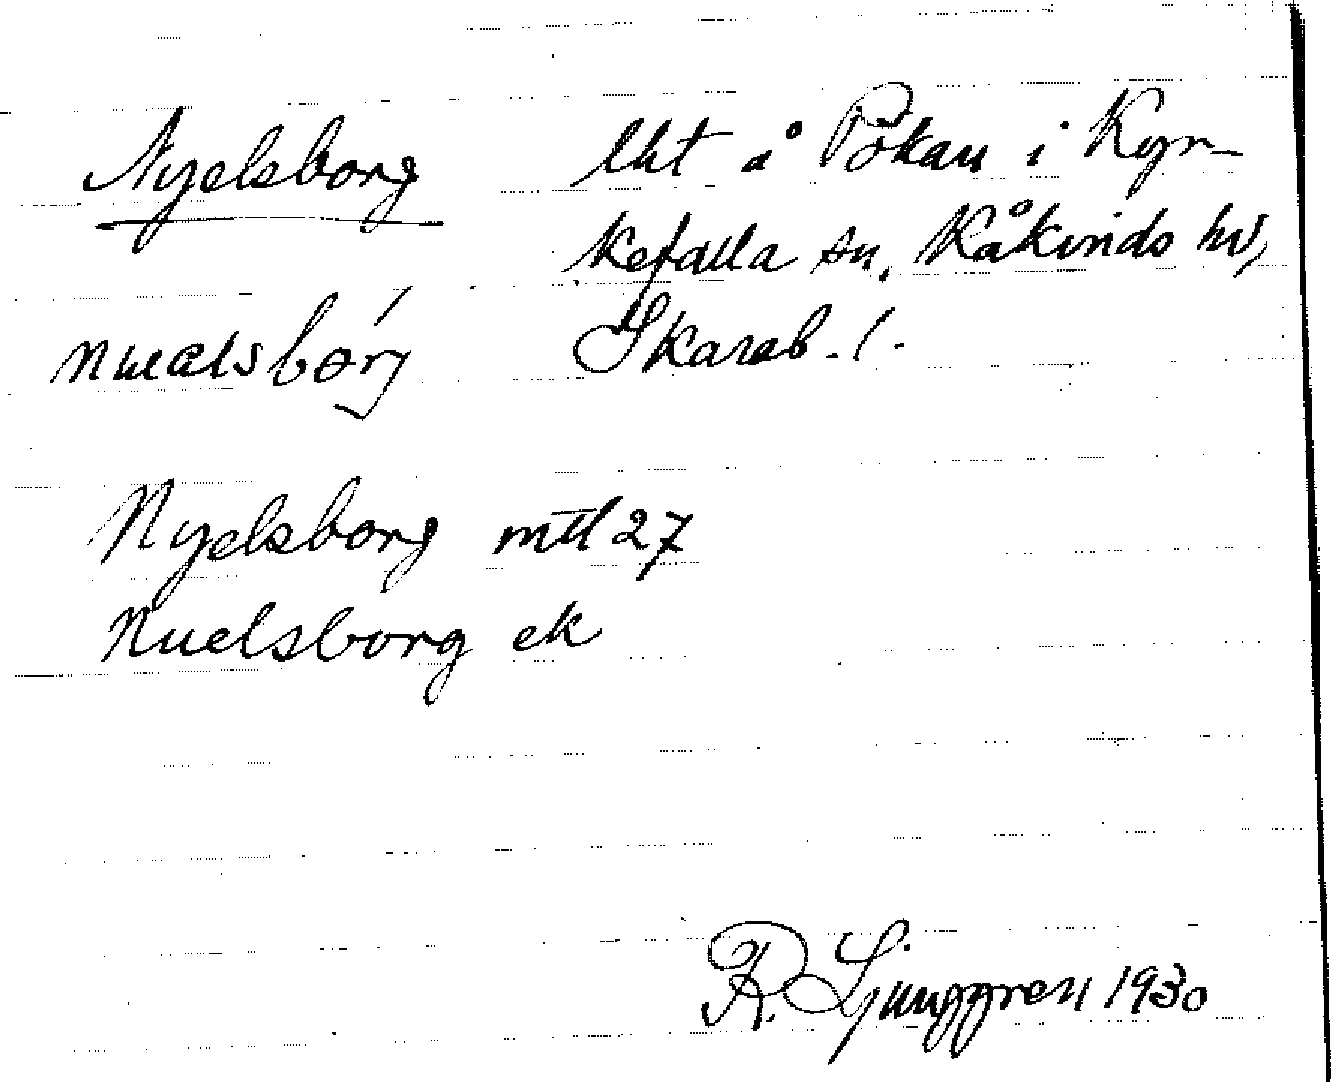 Nyelsborg lht å Pokau i Kyr-
kefalla sn, Kåkinds hd,
Skarab. l.
Nyelsborg mtl 27
Nuelsborg ek
R. Ljunggren 1930